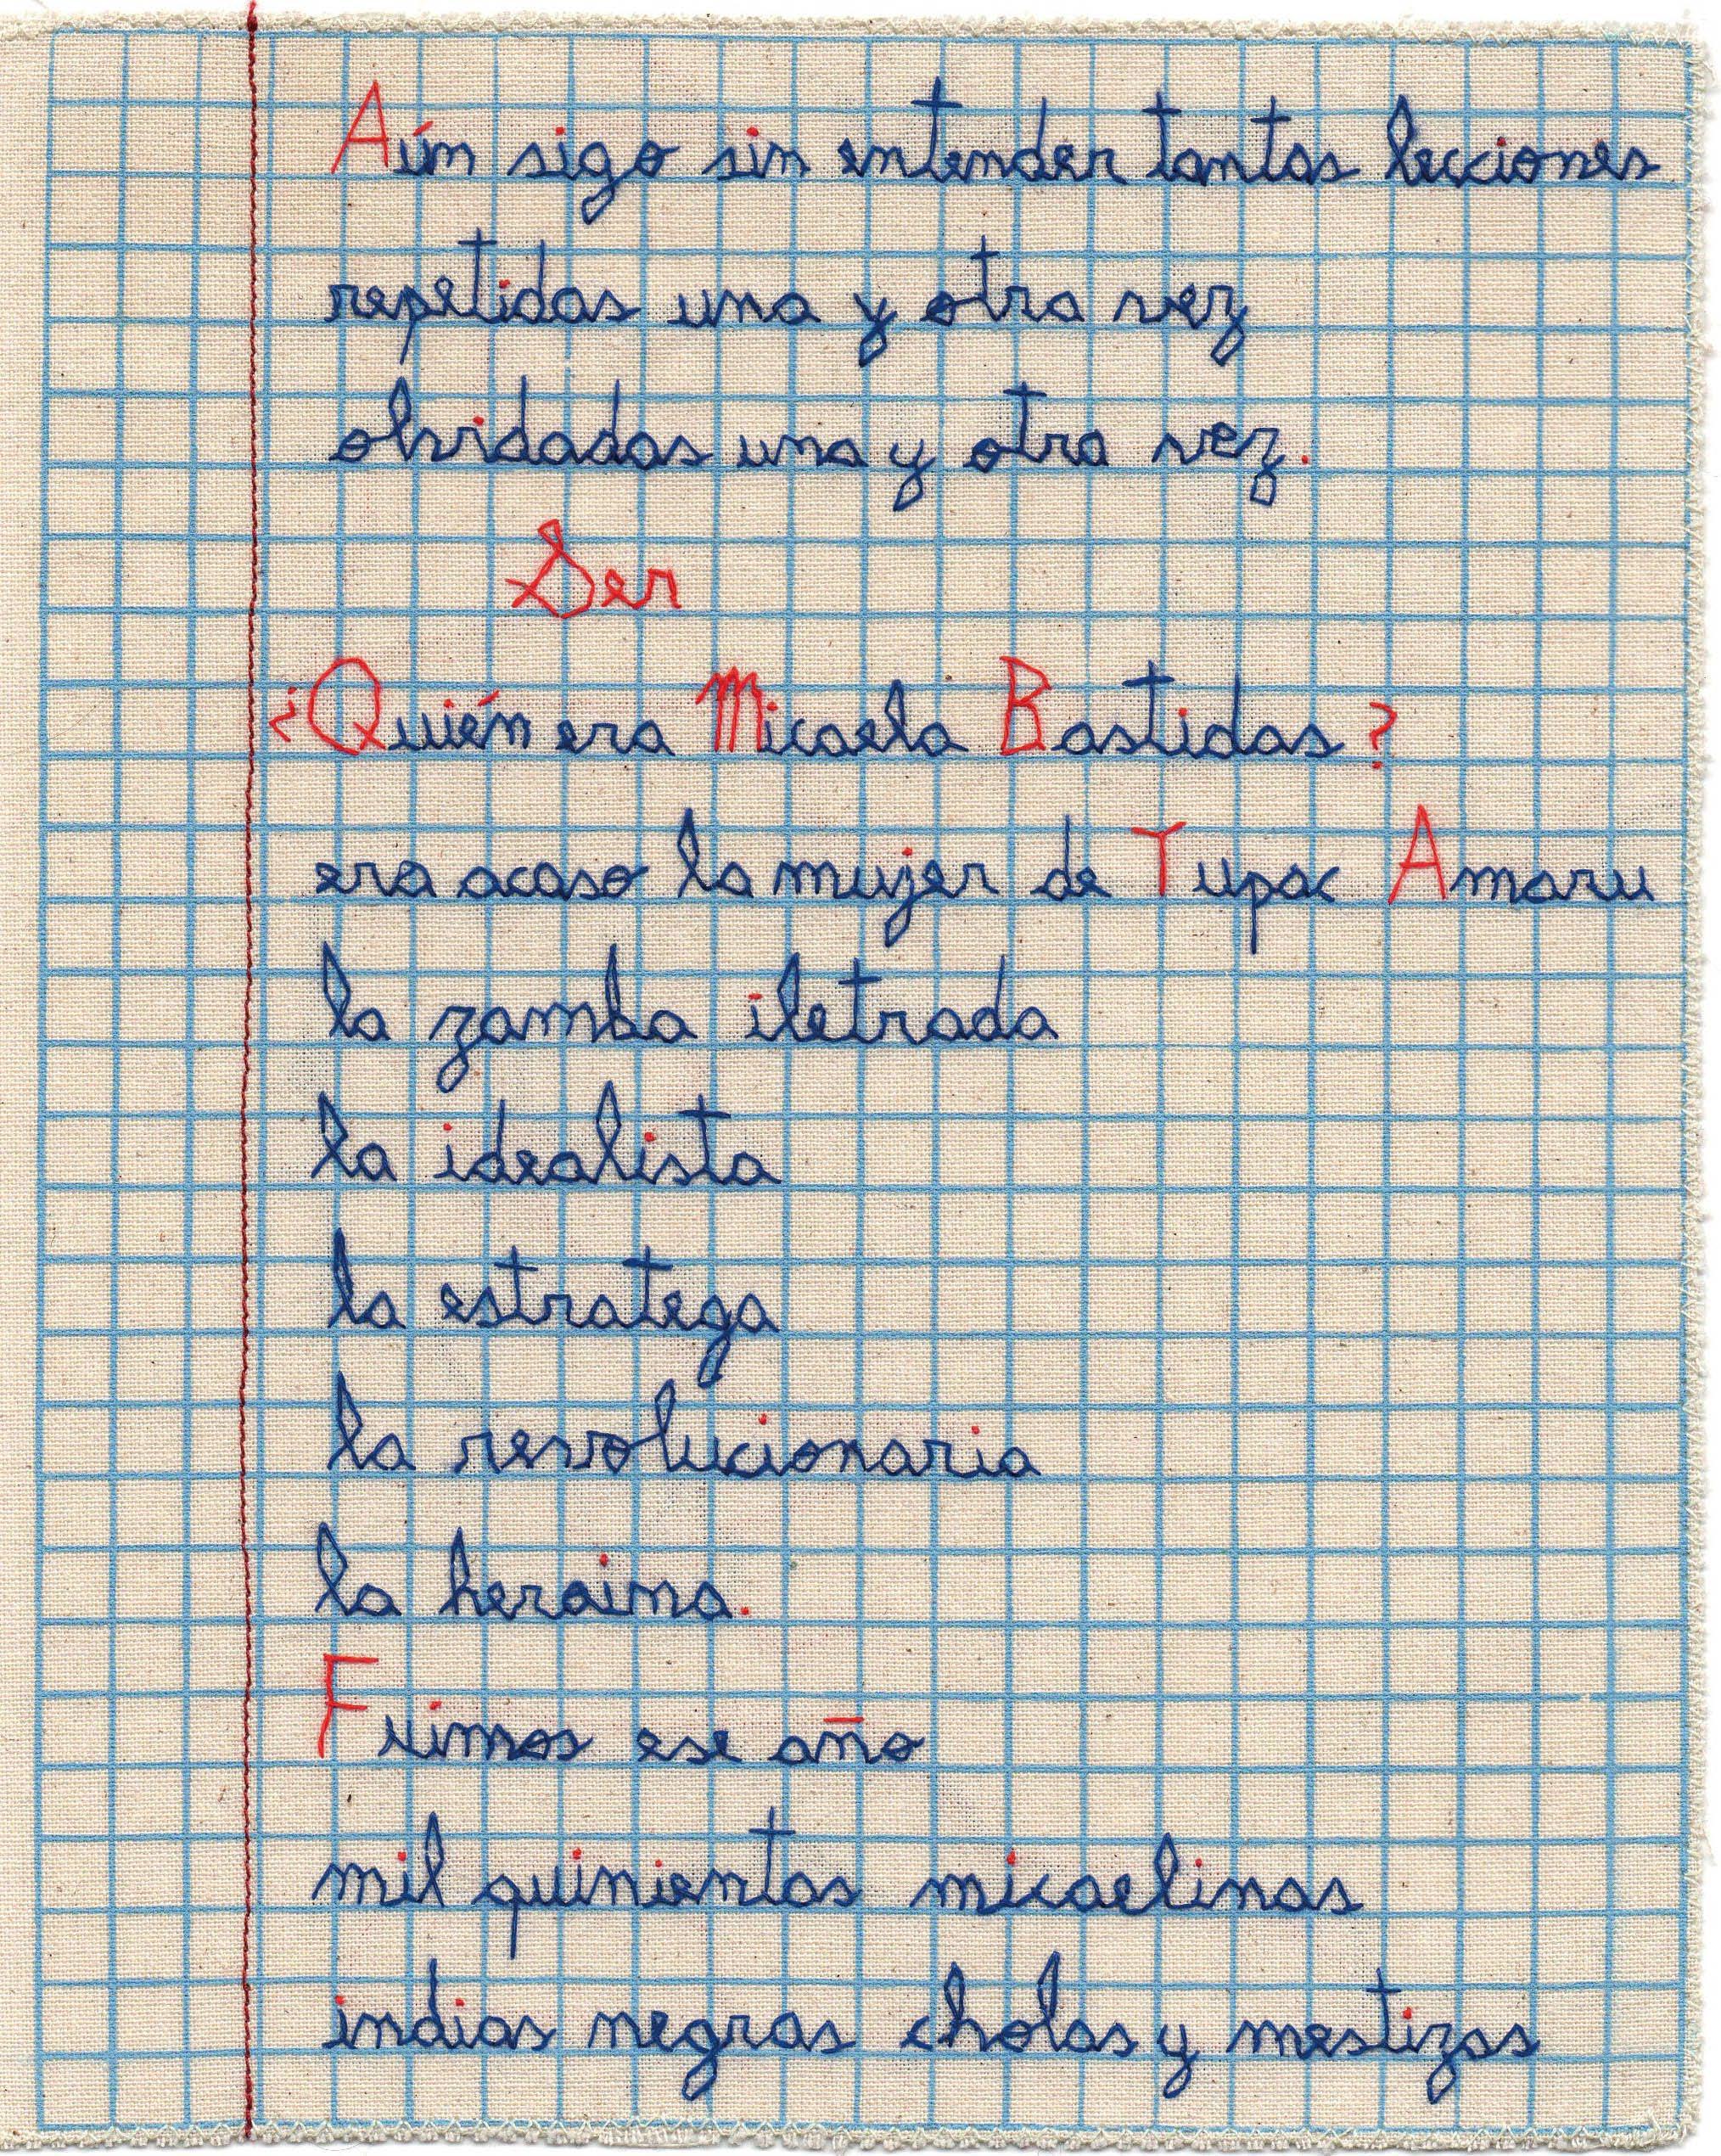 Aún sigo sin entender tantas lecciones
repetidas una y otra vez
olvidadas una y otra vez.
Ser
¿Quién era Micaela Bastidas?
era acaso la mujer de Tupac Amaru
la zamba iletrada
la idealista
la estratega
la revolucionaria
la heroina.
Fuimos ese año
mil quinientas micaelinas
indias negras cholas y mestizas